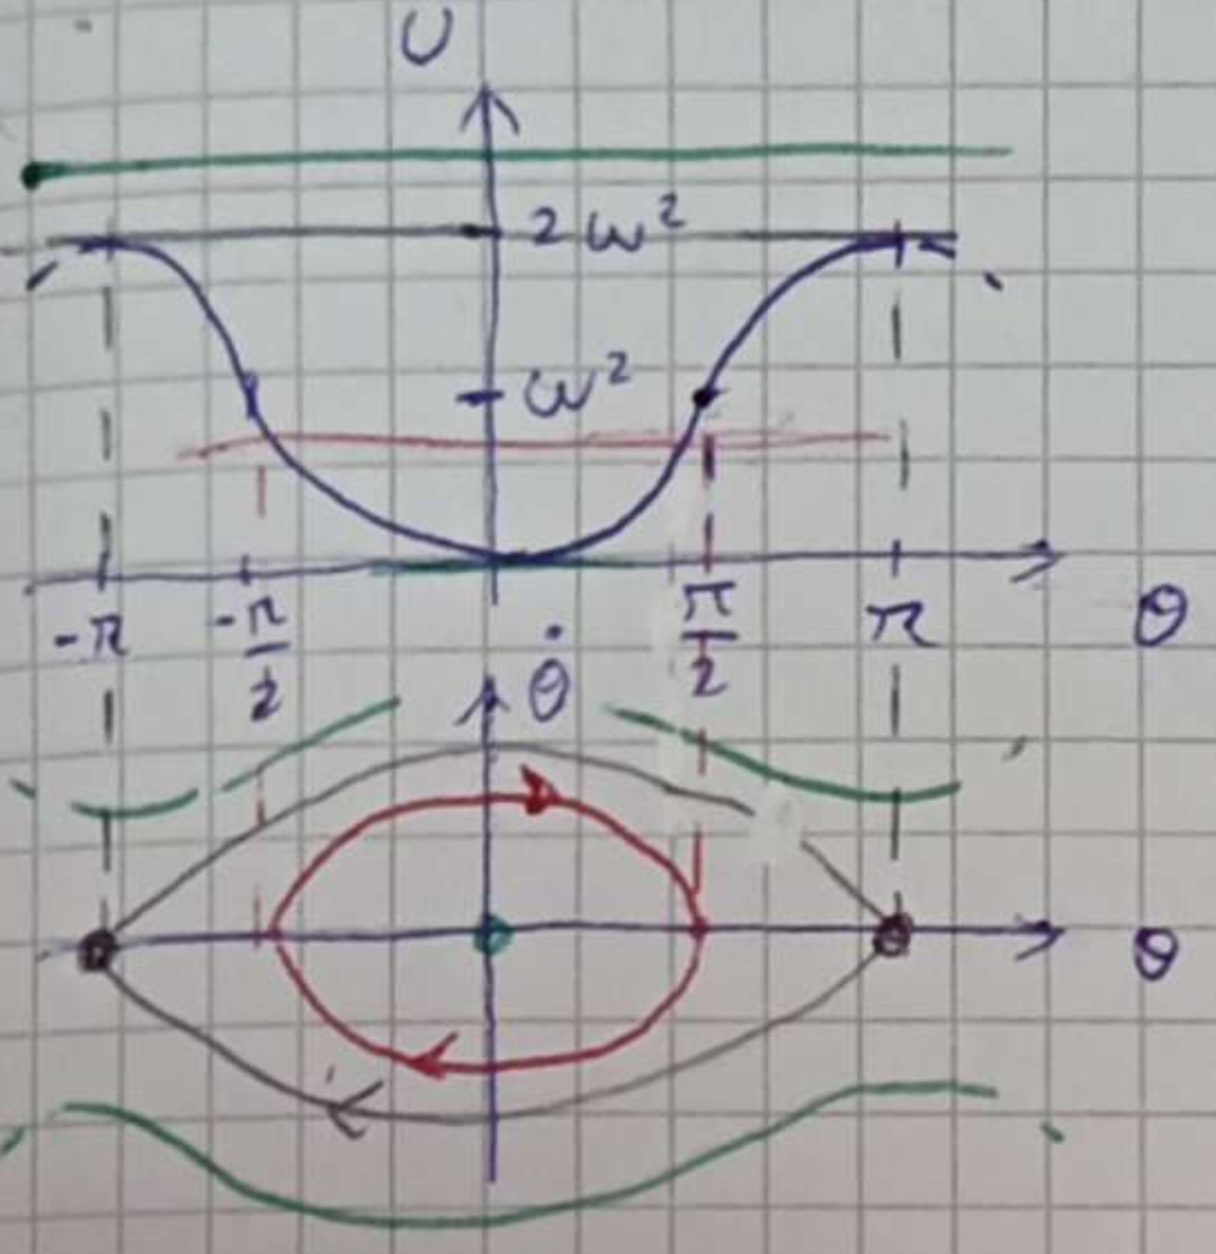 U
2ω²
ω²
-π -π/2 π/2 π θ
θ̇
θ